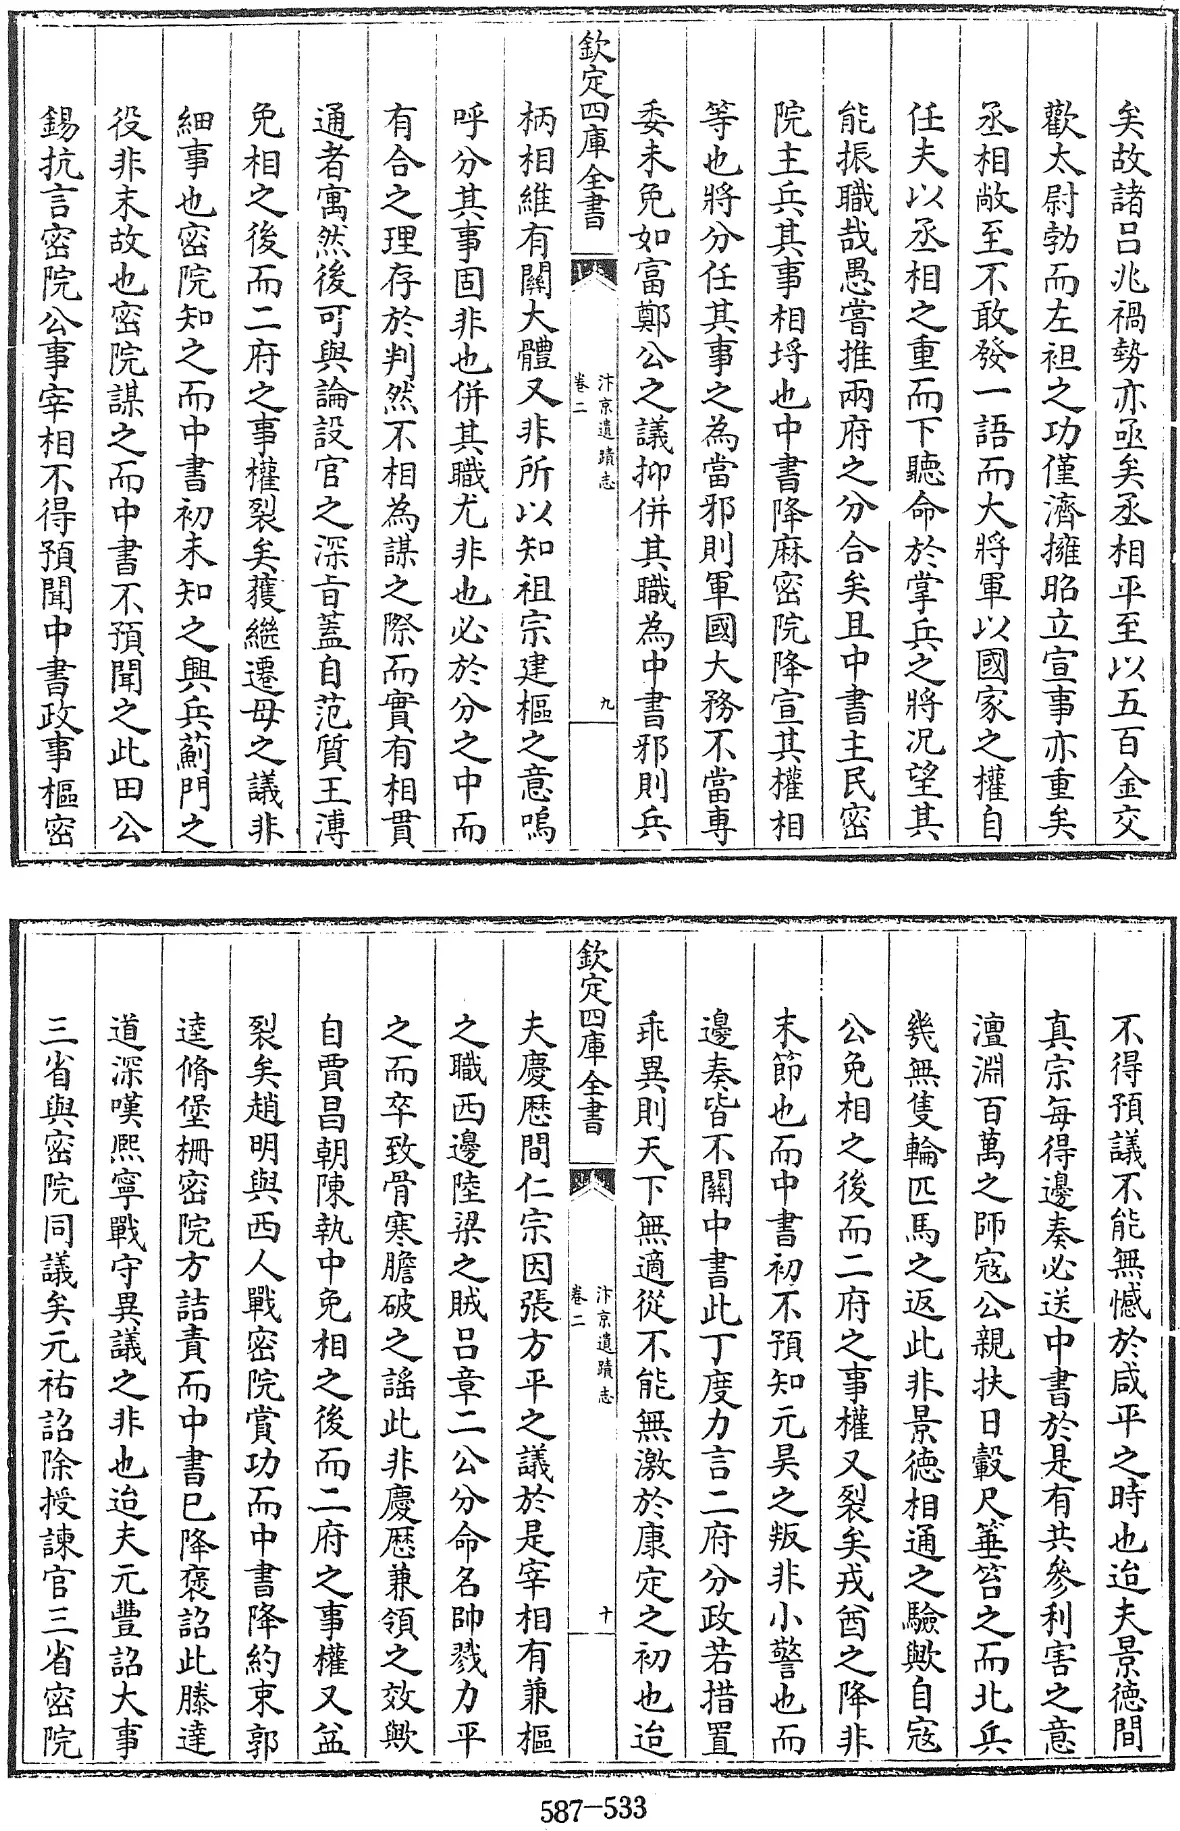 矣故諸呂兆禍勢亦亟矣丞相平至以五百金交
歡太尉勃而左袒之功僅濟擁昭立宣事亦重矣
丞相敞至不敢發一語而大將軍以國家之權自
任夫以丞相之重而下聽命於掌兵之將况望其
能振職哉愚嘗推兩府之分合矣且中書主民密
院主兵其事相埓也中書降麻密院降宣其權相
等也將分任其事之為當邪則軍國大務不當專
委未免如富鄭公之議抑併其職為中書邪則兵
欽定四庫全書
汴京遺蹟志
卷二
九
柄相維有關大體又非所以知祖宗建樞之意嗚
呼分其事固非也併其職尤非也必於分之中而
有合之理存於判然不相為謀之際而實有相貫
通者寓然後可與論設官之深旨蓋自范質王溥
免相之後而二府之事權裂矣獲繼遷母之議非
細事也密院知之而中書初未知之興兵薊門之
役非末故也密院謀之而中書不預聞之此田公
錫抗言密院公事宰相不得預聞中書政事樞密
不得預議不能無憾於咸平之時也迨夫景徳間
真宗每得邊奏必送中書於是有共參利害之意
澶淵百萬之師寇公親扶日轂尺箠笞之而北兵
幾無隻輪匹馬之返此非景徳相通之驗歟自寇
公免相之後而二府之事權又裂矣戎酋之降非
末節也而中書初不預知元昊之叛非小警也而
邊奏皆不關中書此丁度力言二府分政若措置
乖異則天下無適從不能無激於康定之初也迨
欽定四庫全書
汴京遺蹟志
卷二
十
夫慶厯間仁宗因張方平之議於是宰相有兼樞
之職西邊陸梁之賊呂章二公分命名帥戮力平
之而卒致骨寒膽破之謡此非慶厯兼領之效歟
自賈昌朝陳執中免相之後而二府之事權又益
裂矣趙明與西人戰密院賞功而中書降約束郭
逵脩堡栅密院方詰責而中書已降褒詔此滕達
道深嘆熙寧戰守異議之非也迨夫元豐詔大事
三省與密院同議矣元祐詔除授諫官三省密院
587-533